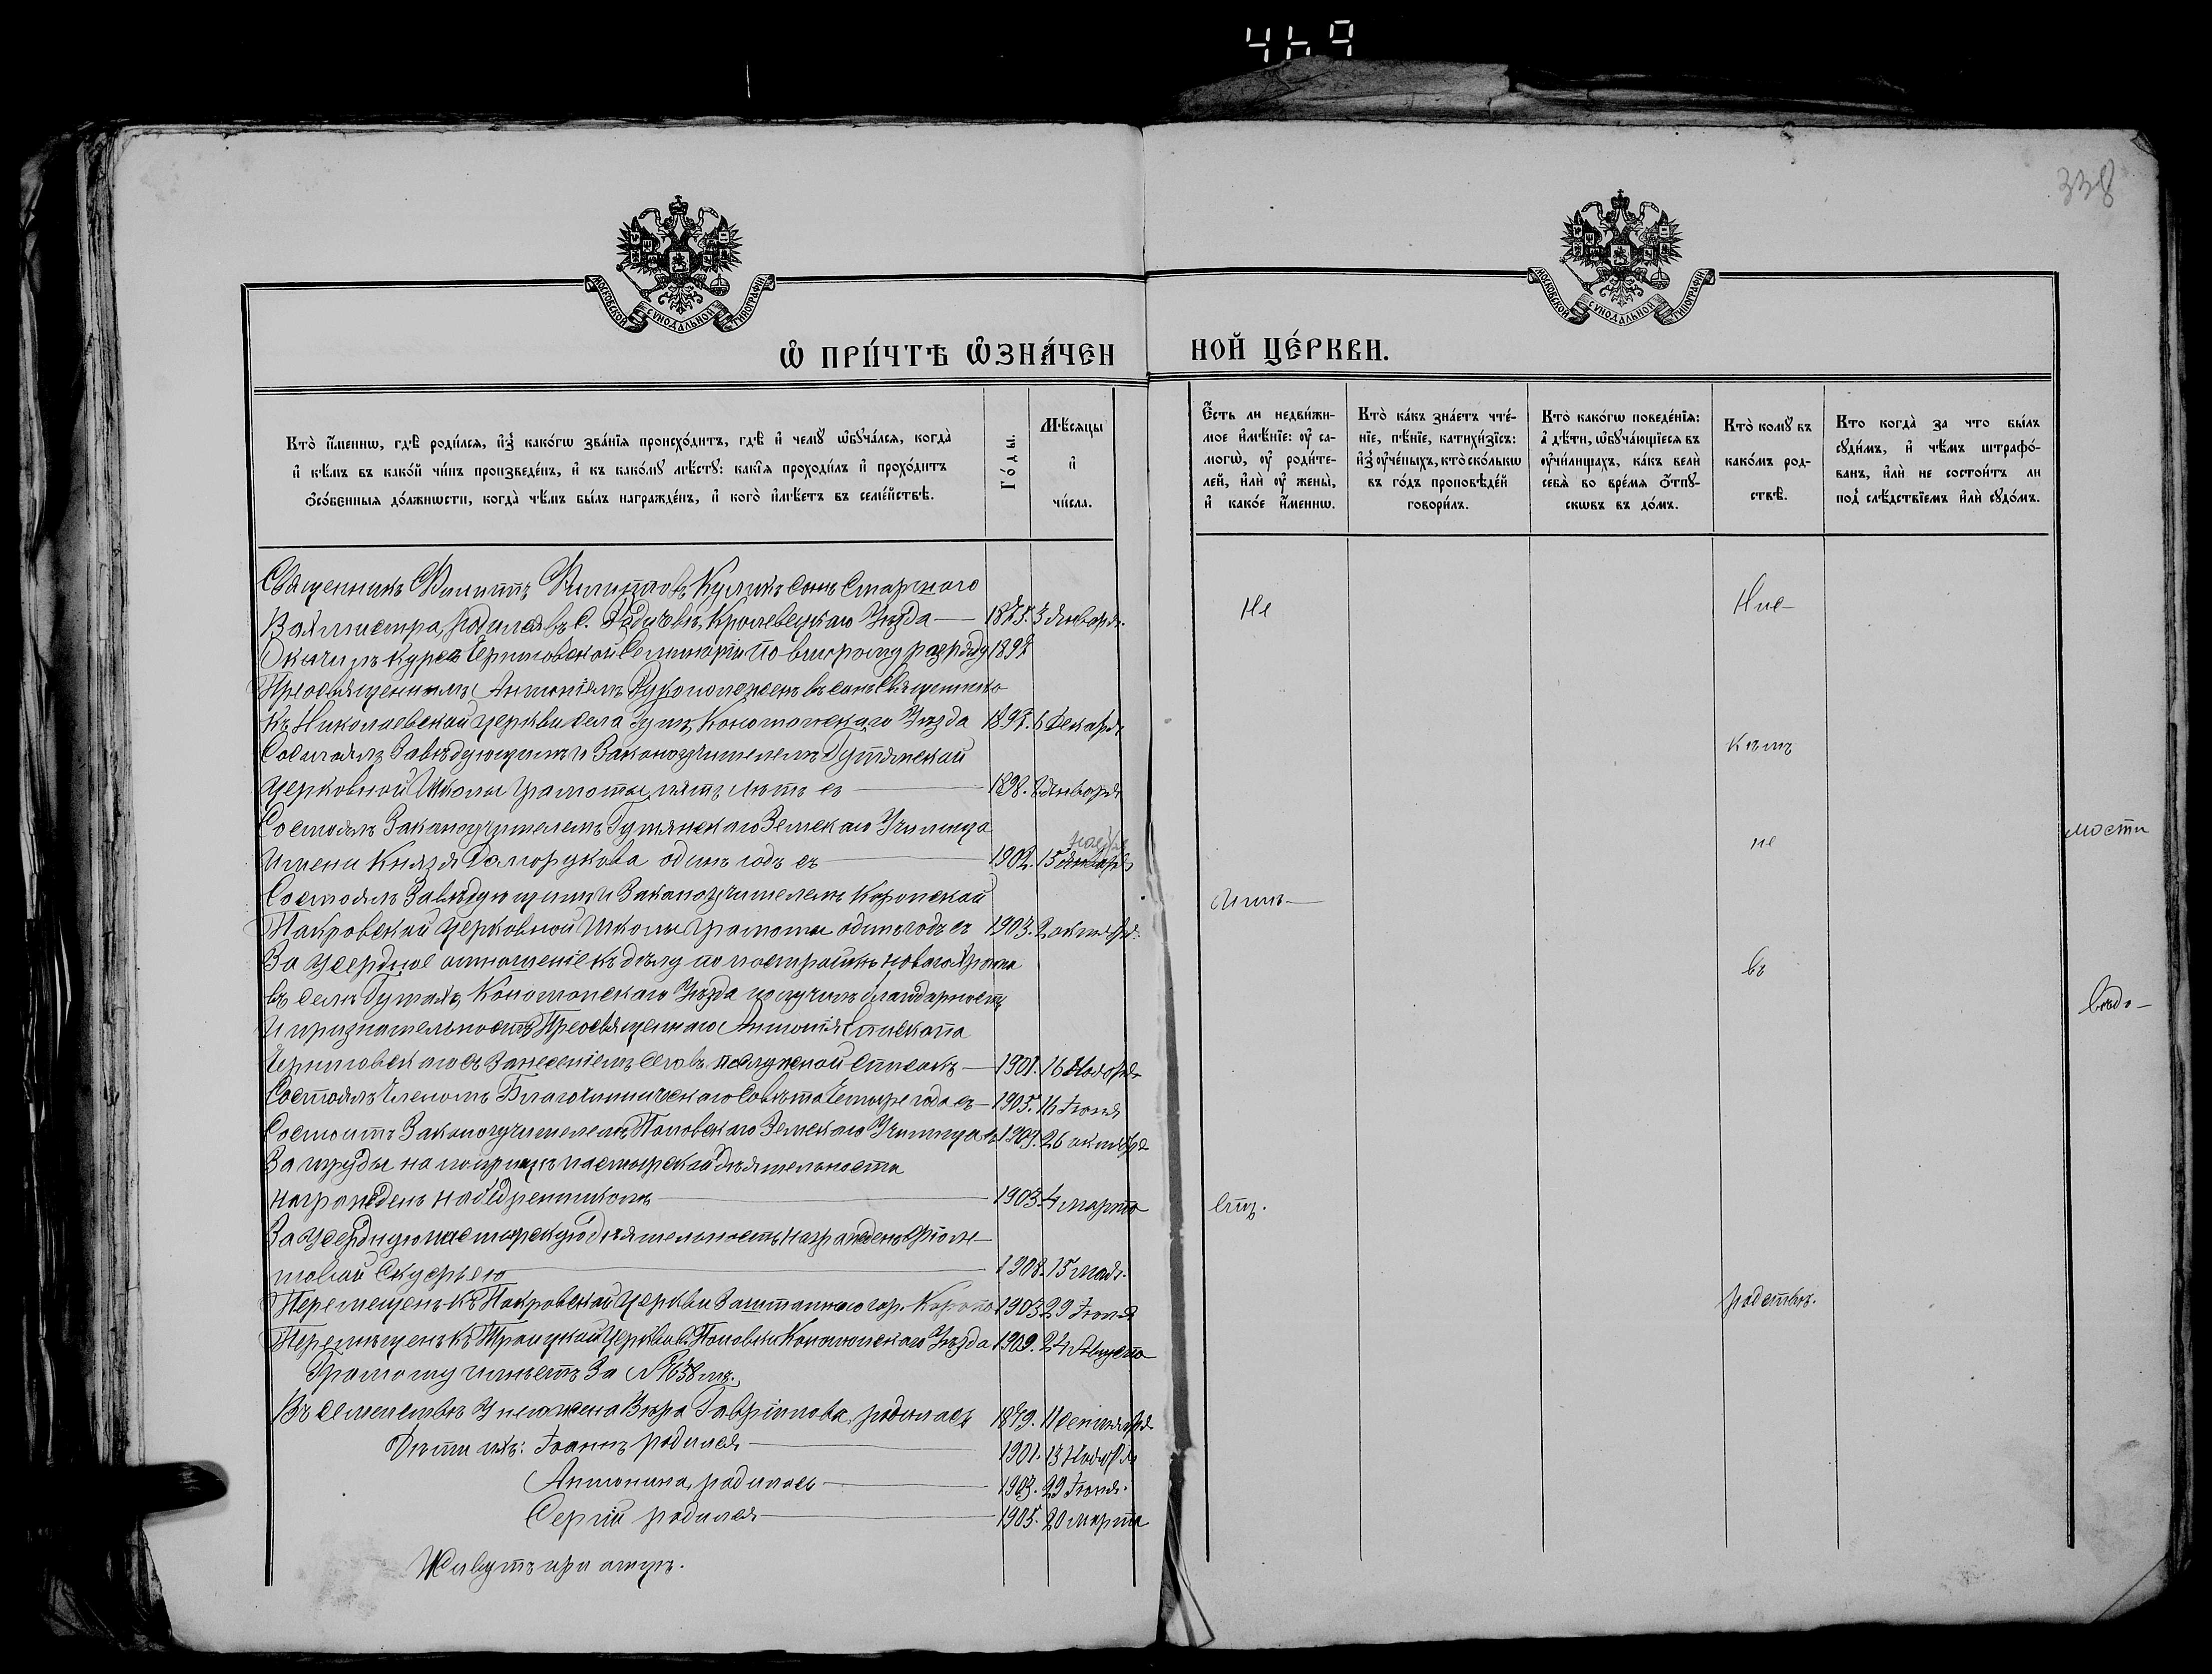 338
МОСКОВСКОЙ СѴНОДАЛЬНОЙ ТИПОГРАФІИ
МОСКОВСКОЙ СѴНОДАЛЬНОЙ ТИПОГРАФІИ
Ѡ ПРИ́ЧТѢ ѠЗНА́ЧЕННОЙ ЦЕ́РКВИ.
Кто̀ и҆́менно, гдѣ̀ роди́лсѧ, и҆з̾ како́гѡ зва́нїѧ происхо́дитъ, гдѣ̀ и҆ чемꙋ̀ ѡ҆бꙋча́лсѧ, когда̀
и҆ кѣ́мъ въ како́й чи́нъ произведе́нъ, и҆ къ како́мꙋ мѣ́стꙋ: какі̑ѧ проходи́лъ и҆ прохо́дитъ
ѻ҆со́бенныѧ до́лжности, когда̀ чѣ́мъ бы́лъ награжде́нъ, и҆ кого̀ и҆мѣ́етъ въ семе́йствѣ.
Го́ды.
Мѣ́сѧцы
и҆
чи́сла.
Є҆́сть ли недви́жи-
мое и҆мѣ́нїе: оу҆ са-
могѡ̀, оу҆ роди́те-
лей, и҆лѝ оу҆ жены̀,
и҆ како́е и҆́менно.
Кто̀ ка́къ зна́етъ чте́-
нїе, пѣ́нїе, катихи́зїсъ:
и҆з̾ оу҆че́ныхъ, кто̀ ско́лькѡ
въ го́дъ проповѣ́дей
говори́лъ.
Кто̀ како́гѡ поведе́нїѧ:
а҆ дѣ́ти, ѡ҆бꙋча́ющїесѧ въ
оу҆чи́лищахъ, ка́къ велѝ
себѧ̀ во вре́мѧ ѿпꙋ-
сковъ въ до́мъ.
Кто̀ комꙋ̀ въ
како́мъ род-
ствѣ̀.
Кто̀ когда̀ за что̀ бы́лъ
сꙋди́мъ, и҆ чѣ́мъ штрафо́-
ванъ, и҆лѝ не состои́тъ ли
под̾ слѣ́дствїемъ и҆лѝ сꙋдо́мъ.
Священникъ Филиппъ Филипповъ Куликъ сынъ Старшаго
Вахмистра, родился въ с. Радичевѣ, Кролевецкаго Уѣзда — 1875. 3 Января.
Окончилъ курсъ Черниговской Семинаріи по второму разряду 189
Преосвященнымъ Антоніемъ Рукоположенъ въ санъ Священника
къ Николаевской церкви села Гутъ, Конотопскаго Уѣзда 189 . 6 Декабря
Состоялъ Завѣдующимъ и Законоучителемъ Гутянской
церковной Школы Грамоты пять лѣтъ съ — 1898. Января
Состоялъ Законоучителемъ Гутянскаго Земскаго Училища
Имени Князя Долгорукова одинъ годъ съ — 1902. 15
Состоялъ Завѣдующимъ и Законоучителемъ Коропской
Покровской Церковной Школы Грамоты одинъ годъ съ 1903. 2 октября.
За усердное отношеніе къ дѣлу по постройкѣ новаго Храма
въ селѣ Гутахъ, Конотопскаго Уѣзда получилъ благодарность
и признательность Преосвященнаго Антонія Епископа
Черниговскаго съ занесеніемъ сего въ послужной списокъ — 1901. 16 Ноября
Состоялъ Членомъ Благочинническаго Совѣта Четыре года съ — 1905. 16 Іюня
Состоитъ Законоучителемъ Поповскаго Земскаго Училища съ 1909. 26 октября
За труды на поприщѣ пастырской дѣятельности
награжденъ набедренникомъ — 1903. 4 марта
За усердную пастырскую дѣятельность награжденъ Фіоле-
товой Скуфьею — 1908. 15 мая.
Перемещенъ къ Покровской Церкви Заштатнаго гор. Коропа 1903 29 Іюня
Перемѣщенъ къ Троицкой Церкви с. Поповки Конотопскаго Уѣзда 1909. 24 Августа
Грамоту имѣетъ За № 638 мъ.
Въ семействѣ У него жена Вѣра Гавріилова родилась 1879. 11 Сентября
Дѣти ихъ: Іоаннъ родился — 1901. 13 Ноября
Антонина родилась — 1903. 29 Іюня.
Сергій родился — 1905. 20 марта
Живутъ при отцѣ.
Не
Имѣ-
етъ.
Ние-
кѣмъ
не
въ
родствѣ.
мости
вѣдо-